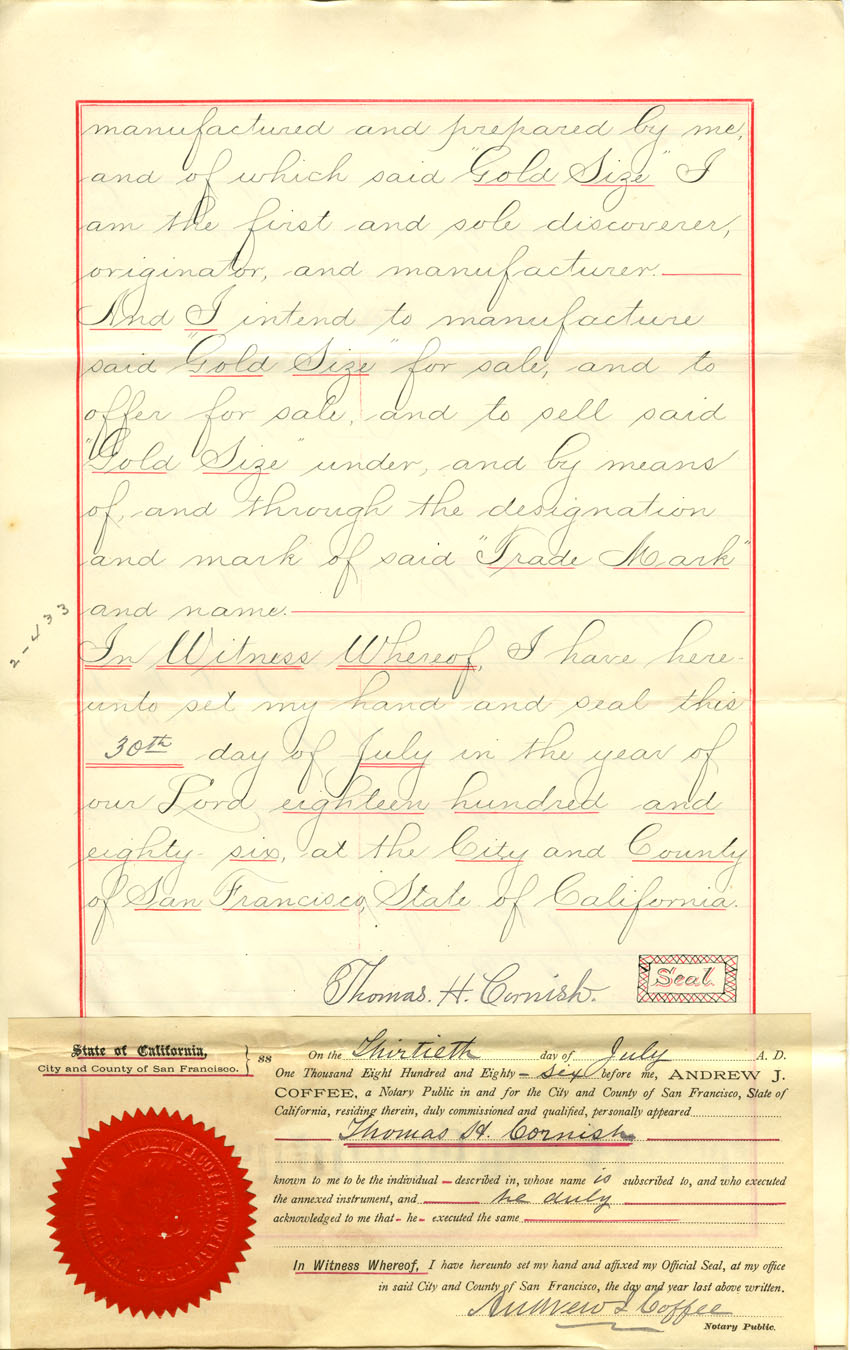 manufactured and prepared by me,
and of which said "Gold Size" I
am the first and sole discoverer,
originator, and manufacturer.
And I intend to manufacture
said "Gold Size" for sale, and to
offer for sale, and to sell said
"Gold Size" under, and by means
of, and through the designation
and mark of said "Trade Mark"
and name.
2-433
In Witness Whereof, I have here-
unto set my hand and seal this
30th day of July in the year of
our Lord eighteen hundred and
eighty-six, at the City and County
of San Francisco, State of California.
Thomas. H. Cornish. Seal.
State of California,
City and County of San Francisco. } ss
On the Thirtieth day of July A. D.
One Thousand Eight Hundred and Eighty-six before me, ANDREW J.
COFFEE, a Notary Public in and for the City and County of San Francisco, State of
California, residing therein, duly commissioned and qualified, personally appeared
Thomas H. Cornish
known to me to be the individual - described in, whose name is subscribed to, and who executed
the annexed instrument, and he duly
acknowledged to me that - he - executed the same
In Witness Whereof, I have hereunto set my hand and affixed my Official Seal, at my office
in said City and County of San Francisco, the day and year last above written.
Andrew J Coffee
Notary Public.